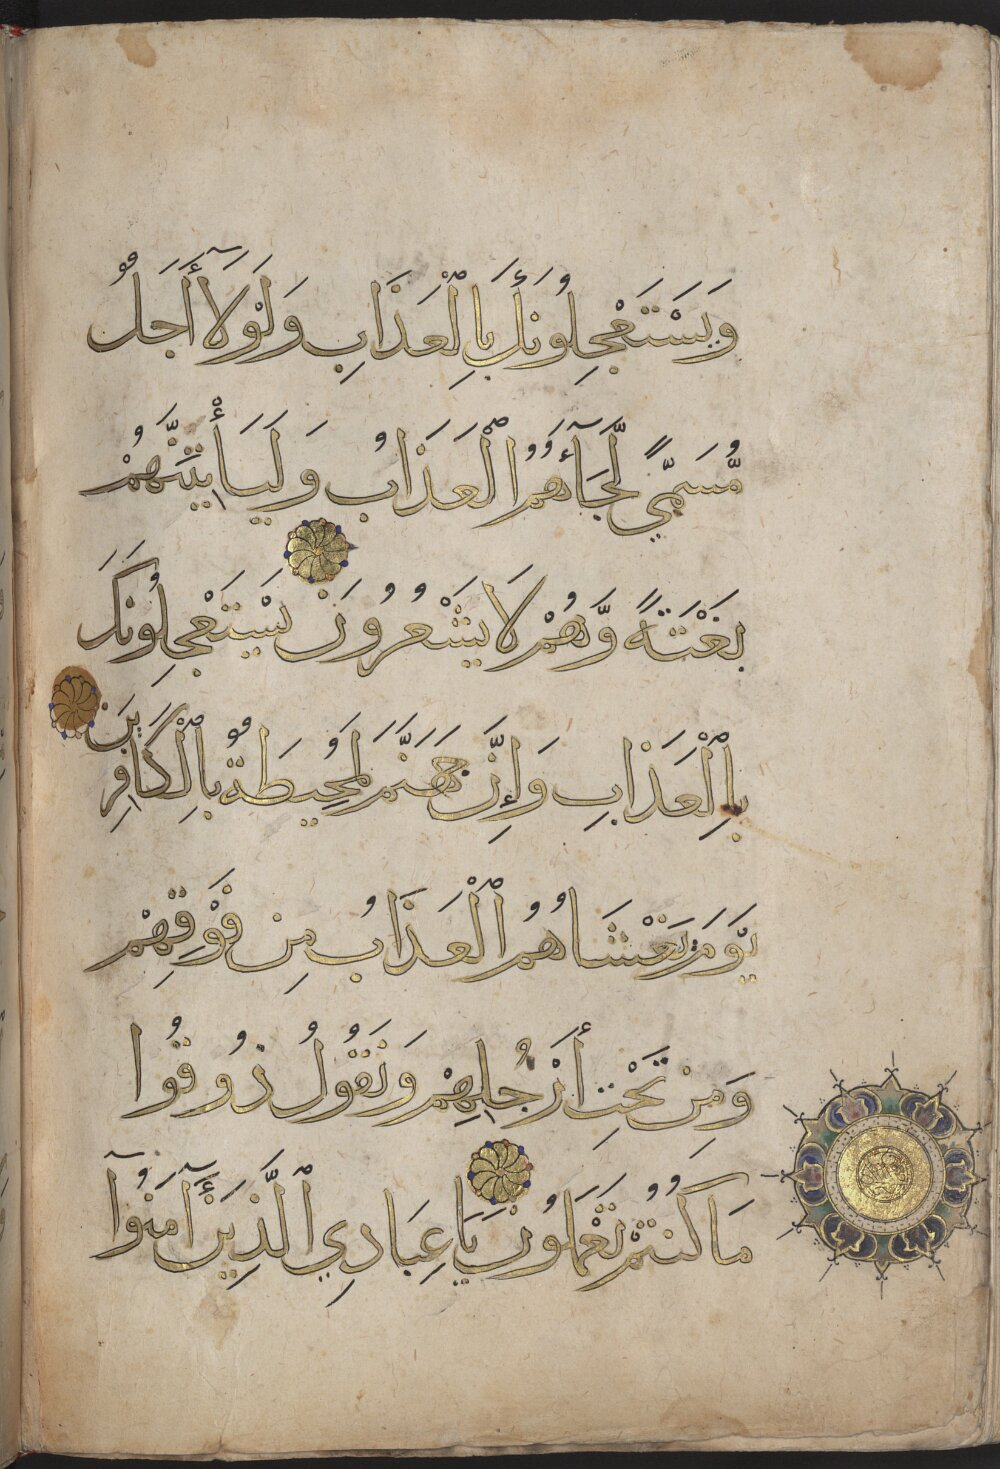 وَيَسْتَعْجِلُونَكَ بِالْعَذَابِ وَلَوْلَآ أَجَلٌ
مُّسَمًّى لَّجَآءَهُمُ الْعَذَابُ وَلَيَأْتِيَنَّهُمْ
بَغْتَةً وَّهُمْ لَا يَشْعُرُونَ يَسْتَعْجِلُونَكَ
بِالْعَذَابِ وَإِنَّ جَهَنَّمَ لَمُحِيطَةٌ بِالْكَافِرِينَ
يَوْمَ يَغْشَاهُمُ الْعَذَابُ مِن فَوْقِهِمْ
وَمِن تَحْتِ أَرْجُلِهِمْ وَنَقُولُ ذُوقُوا
مَا كُنتُمْ تَعْمَلُونَ يَا عِبَادِي الَّذِينَ آمَنُوٓا